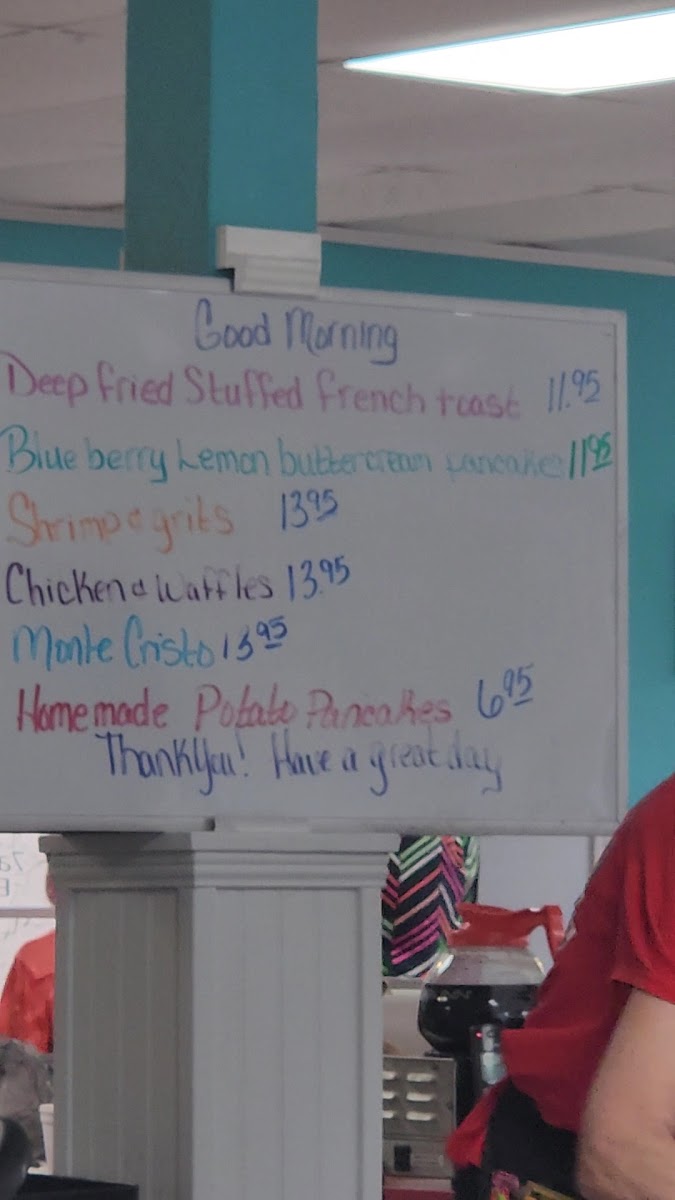 Good Morning
Deep fried Stuffed french toast 11.95
Blue berry Lemon buttercream pancakes 11.95
Shrimp & grits 13.95
Chicken & Waffles 13.95
Monte Cristo 13.95
Home made Potato Pancakes 6.95
Thank You! Have a great day